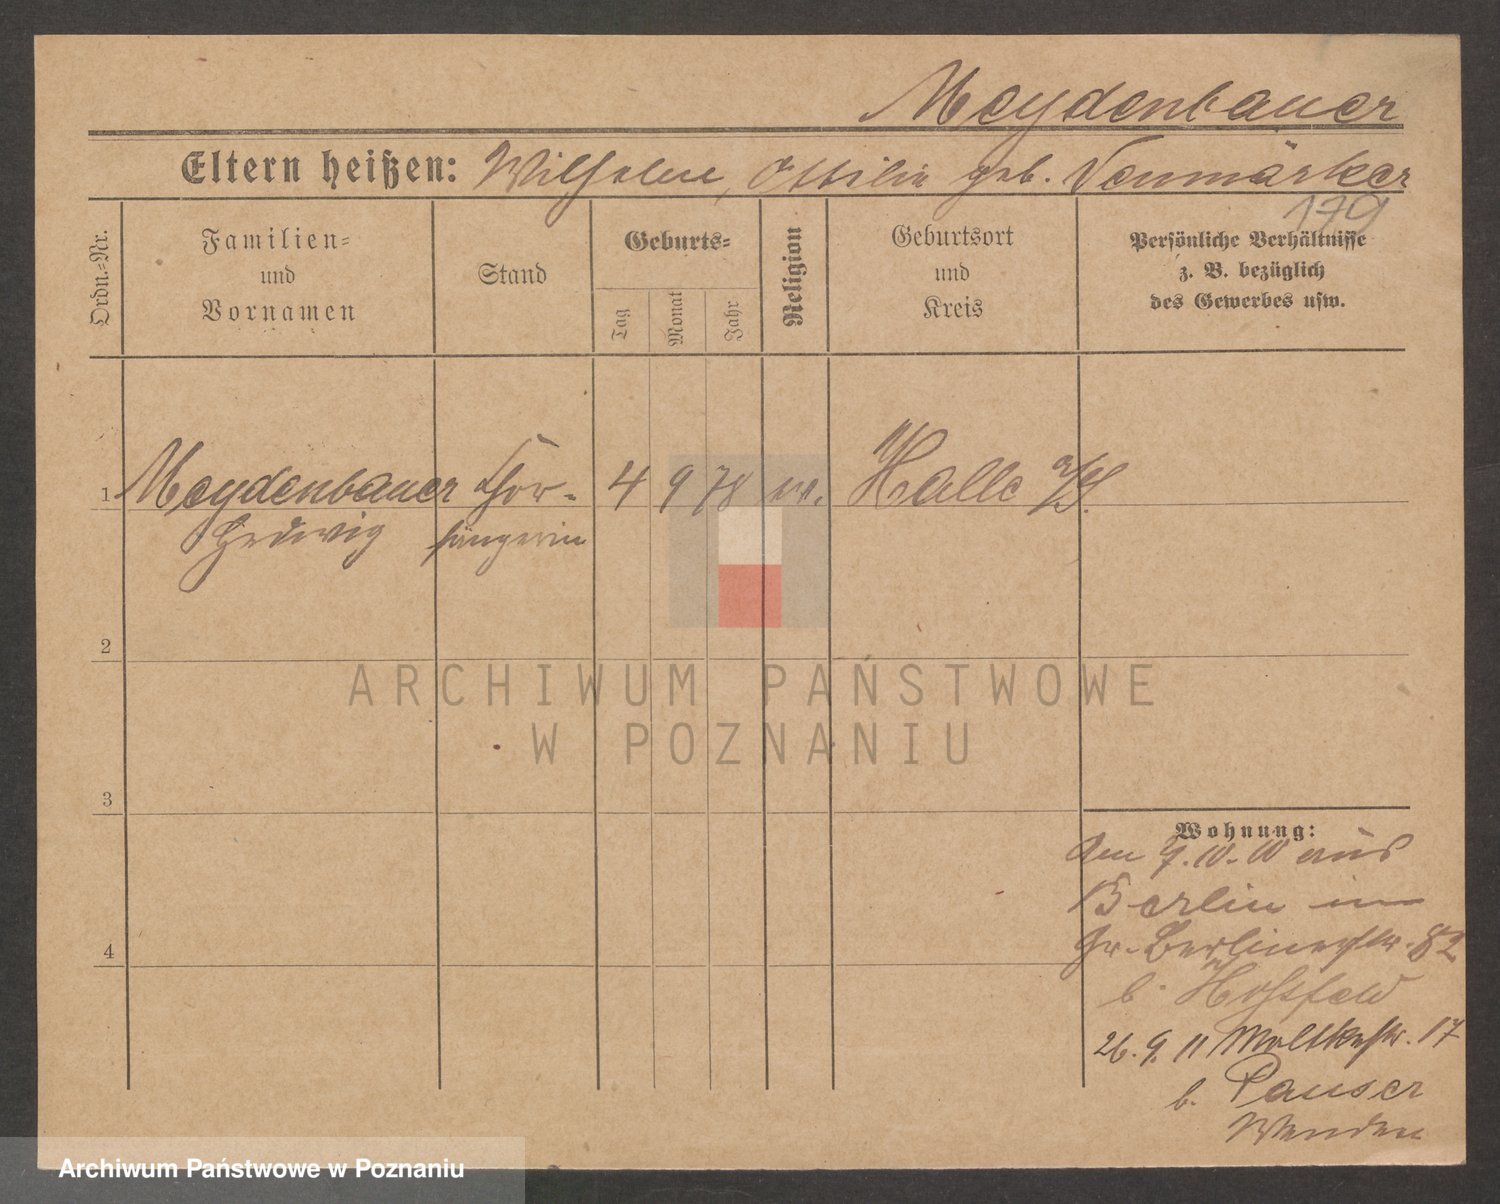 Meydenbauer
Eltern heißen: Wilhelm, Ottilie geb. Neumärker
179
Ordn.-Nr.
Familien-
und
Vornamen
Stand
Geburts-
Tag
Monat
Jahr
Religion
Geburtsort
und
Kreis
Persönliche Verhältnisse
z. B. bezüglich
des Gewerbes usw.
1 Meydenbauer Chor- 4 9 78 Halle a/S.
Hedwig sängerin
2
3
4
Wohnung:
den aus
Berlin
Gr. Berlinerstr. 82
b.
26. 9. 11 Moltkestr. 17
b. Pauser
ARCHIWUM PAŃSTWOWE
W POZNANIU
Archiwum Państwowe w Poznaniu